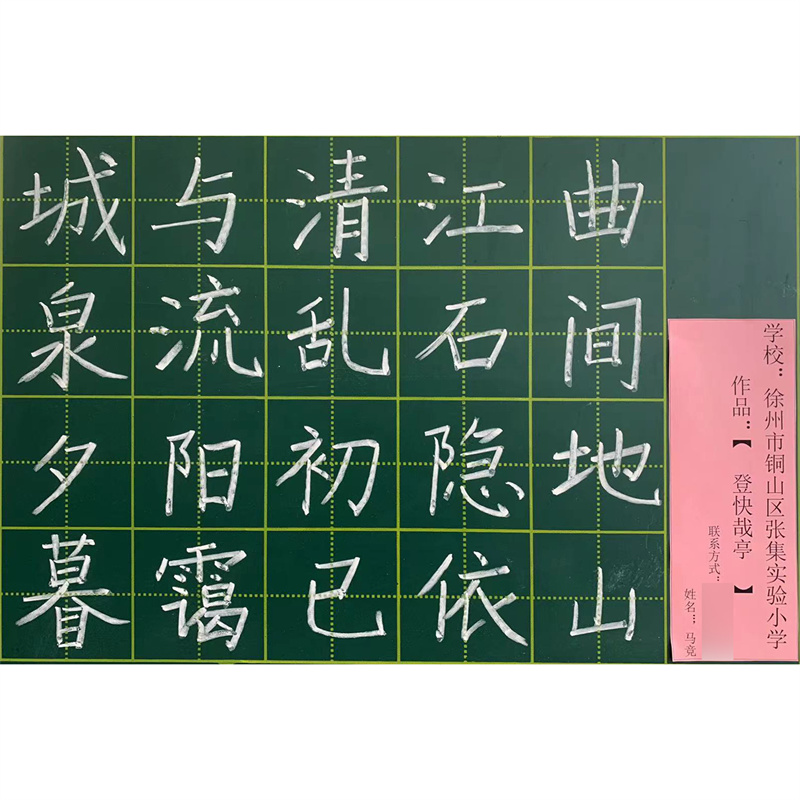 城与清江曲
泉流乱石间
夕阳初隐地
暮霭已依山
学校：徐州市铜山区张集实验小学
作品：【 登快哉亭 】
联系方式：
姓名：马竟